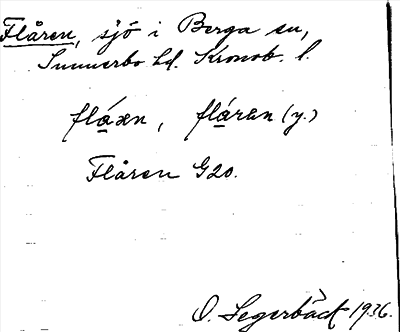 Flåren, sjö i Berga sn,
Sunnerbo hd. Kronob. l.
flåren (y.)
Flåren G20.
O. Segerbäck 1936.